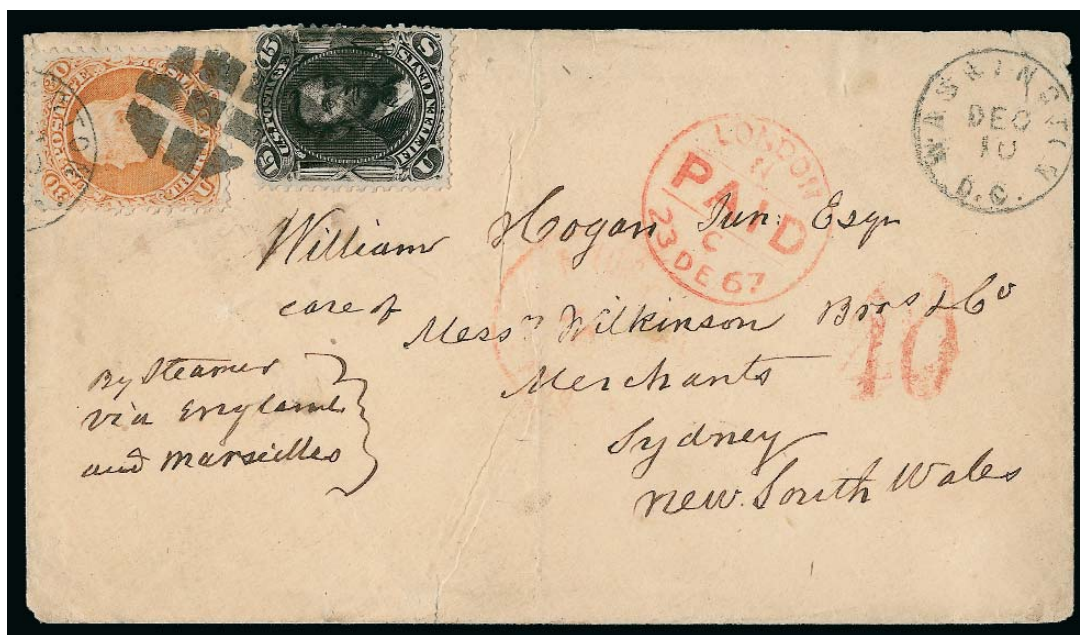 WASHINGTON
DEC
10
D.C.
LONDON
PAID
C
23 DE 67
William Hogan Jun: Esqr
care of
Messrs Wilkinson Bros & Co
Merchants
Sydney
New South Wales
By Steamer
via England
and Marseilles
30
15